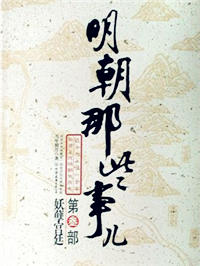 明朝那些事儿
第叁部
妖孽宫廷